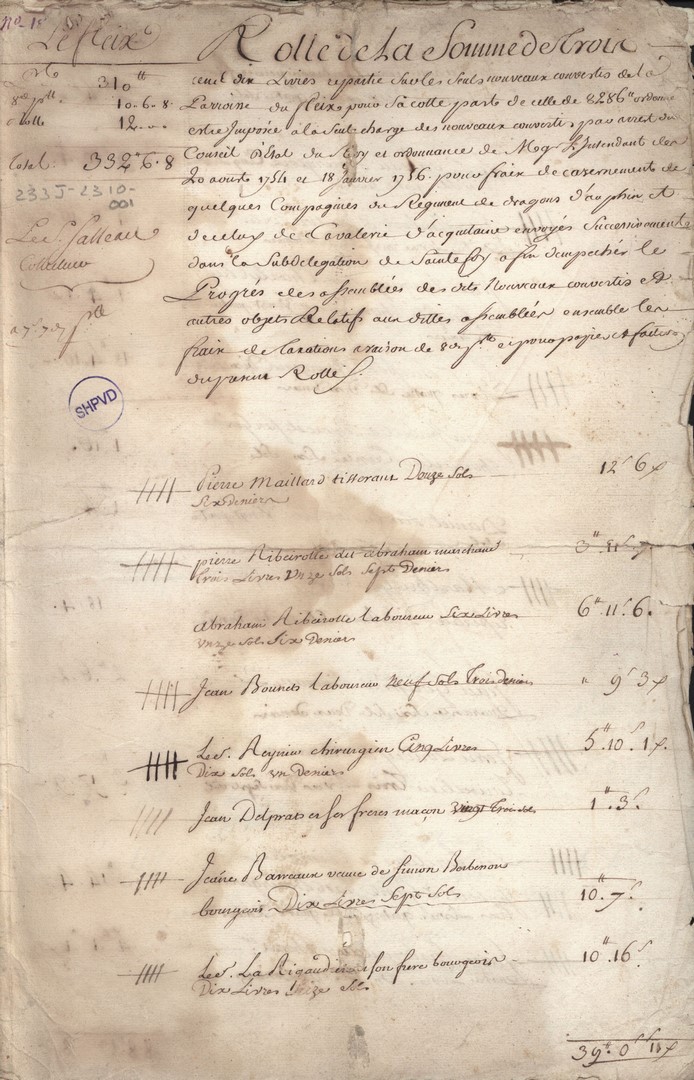 No. 18
Le fleix
310 tt
10. 6. 8
12. "
total. 332 tt 6. 8
233J-2310-
001
Le Sr. Salleau
Collecteur
SHPVD
Rolle de La Somme de Trois
cent dix Livres repartie sur les seuls nouveaux convertis de la
Parroisse du fleix pour sa cotte part de celle de 8286 tt ordonné
estre Imposée a la seule charge des nouveaux convertis par arrest du
Conseil d'Etat du Roy et ordonnance de Mgr L'Intendant des
20 aoust 1754 et 18 Janvier 1756. pour fraix de cazernement de
quelques Compagnies du Regiment de dragons d'auphin et
de celuy de Cavalerie d'acquitaine envoyés Successivement
dans la Subdelegation de Sainte foy afin d'empecher le
Progrés des assemblées des dits Nouveaux convertis et
autres objets Relatifs aux dittes assemblées ensemble les
fraix de taxations a raison de 8 d. pr. tt et pour papier et facture
du present Rolle
Pierre Maillard tisserant Douze Sols
Six deniers
12 s 6 d
pierre Ribeirolle dit abraham marchand
trois Livres Unze Sols Sept Deniers
3 tt. 11 s. 7
abraham Ribeirolle laboureur Six Livres
Unze Sols Six Deniers
6 tt. 11 s. 6.
Jean Bounets laboureur neuf Sols Trois deniers
" 9 s 3 d
Le Sr. Reynie chirurgien Cinq Livres
Dix Sols un Denier
5 tt. 10. 1 d.
Jean Delprat et ses freres maçon vingt Trois sols
1 tt. 3 s.
Barreaux veuve de
bourgeois Dix Livres Sept Sols
10 tt. 7 s.
Le Sr. La Rigaudie et son frere bourgeois
Dix Livres Seize Sols
10 tt. 16 s.
39 tt. 0 s 11 d